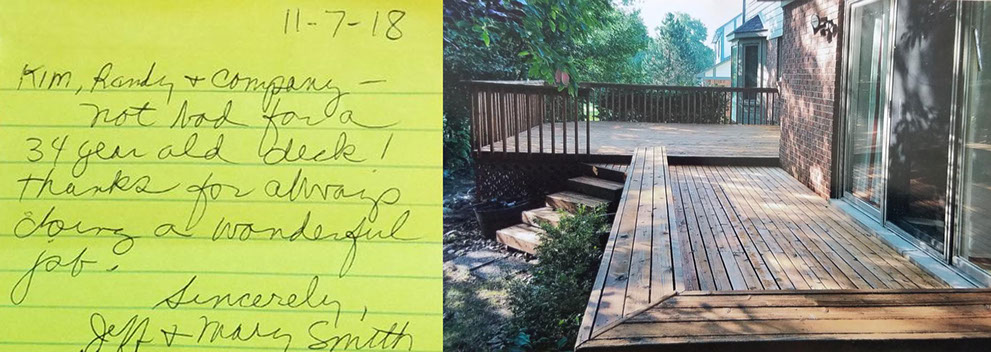 11-7-18
Kim, Randy + Company —
not bad for a
34 year old deck!
thanks for always
doing a wonderful
job.
Sincerely,
Jeff + Mary Smith